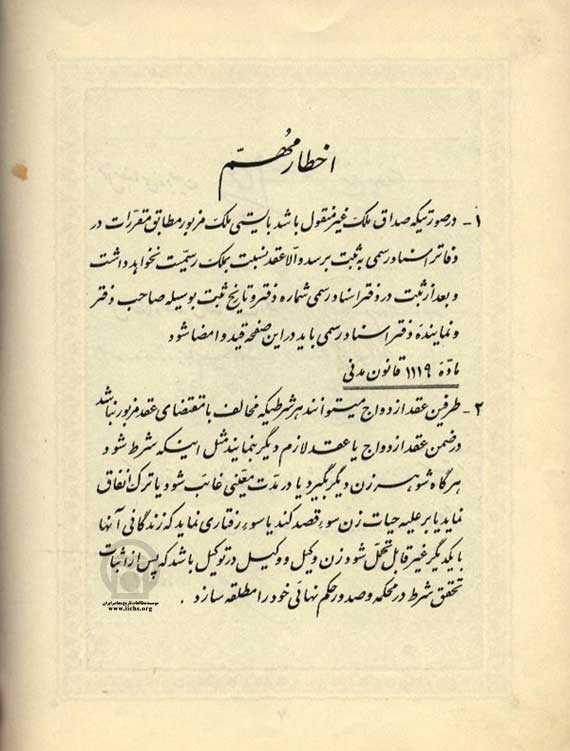 اخطار مهمّ
۱- درصورتیکه صداق ملک غیر منقول باشد بایستی ملک مزبور مطابق مقرّرات در
دفاتر اسناد رسمی به ثبت برسد والّا عقد نسبت بملک رسمیّت نخواهد داشت
و بعد از ثبت در دفتر اسناد رسمی شماره دفتر و تاریخ ثبت بوسیله صاحب دفتر
و نماینده دفتر اسناد رسمی باید در این صفحه قید و امضا شود
مادّهٔ ۱۱۱۹ قانون مدنی
۲- طرفین عقد ازدواج میتوانند هر شرطیکه مخالف با مقتضای عقد مزبور نباشد
در ضمن عقد ازدواج یا عقد لازم دیگر بنمایند مثل اینکه شرط شود
هرگاه شوهر زن دیگر بگیرد یا در مدت معیّنی غائب شود یا ترک انفاق
نماید یا بر علیه حیات زن سوء قصد کند یا سوء رفتاری نماید که زندگانی آنها
با یکدیگر غیر قابل تحمّل شود زن وکیل و وکیل در توکیل باشد که پس از اثبات
تحقق شرط در محکمه و صدور حکم نهائی خود را مطلقه سازد .
موسسه مطالعات تاریخ معاصر ایران
www.iichs.org